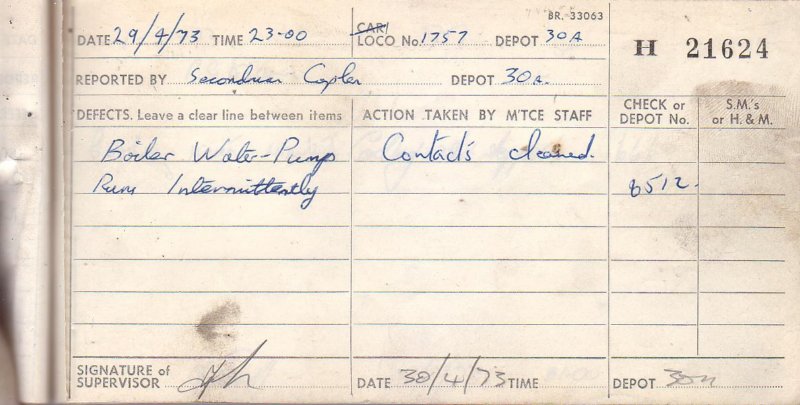 BR. 33063
DATE 29/4/73 TIME 23-00 CAR/ LOCO No. 1757 DEPOT 30A
H 21624
REPORTED BY Secondman DEPOT 30A.
DEFECTS. Leave a clear line between items ACTION TAKEN BY M'TCE STAFF CHECK or DEPOT No. S.M.'s or H. & M.
Boiler Water-Pump Contacts cleaned.
Runs Intermittently 8512.
SIGNATURE of SUPERVISOR DATE 30/4/73 TIME DEPOT 30A